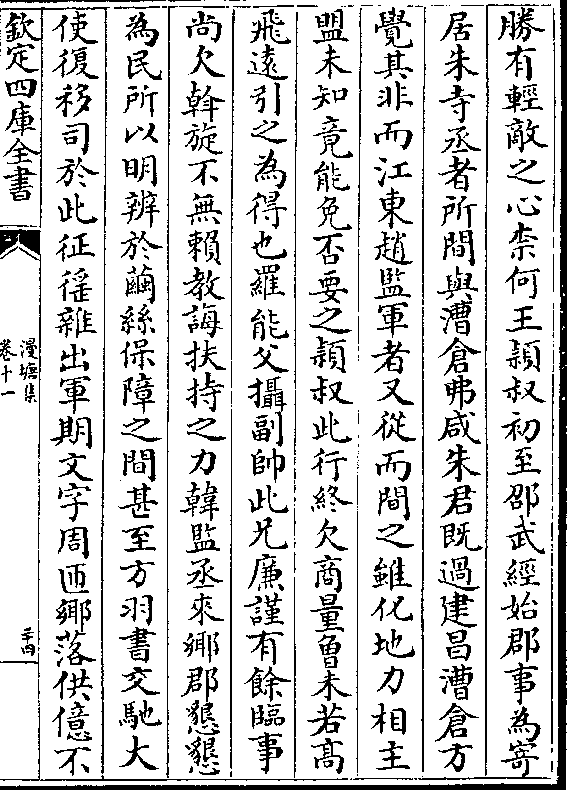 勝有輕敵之心柰何王頴叔初至邵武經始郡事為寄
居朱寺丞者所間與漕倉弗咸朱君既過建昌漕倉方
覺其非而江東趙監軍者又從而間之雖化地力相主
盟未知竟能免否要之頴叔此行終欠商量魯未若高
飛遠引之為得也羅能父攝副帥此兄廉謹有餘臨事
尚欠斡旋不無賴教誨扶持之力韓監丞來鄉郡懇懇
為民所以明辨於繭絲保障之間甚至方羽書交馳大
使復移司於此征徭雜出軍期文字周匝鄉落供億不
欽定四庫全書
漫塘集
卷十一
三十四